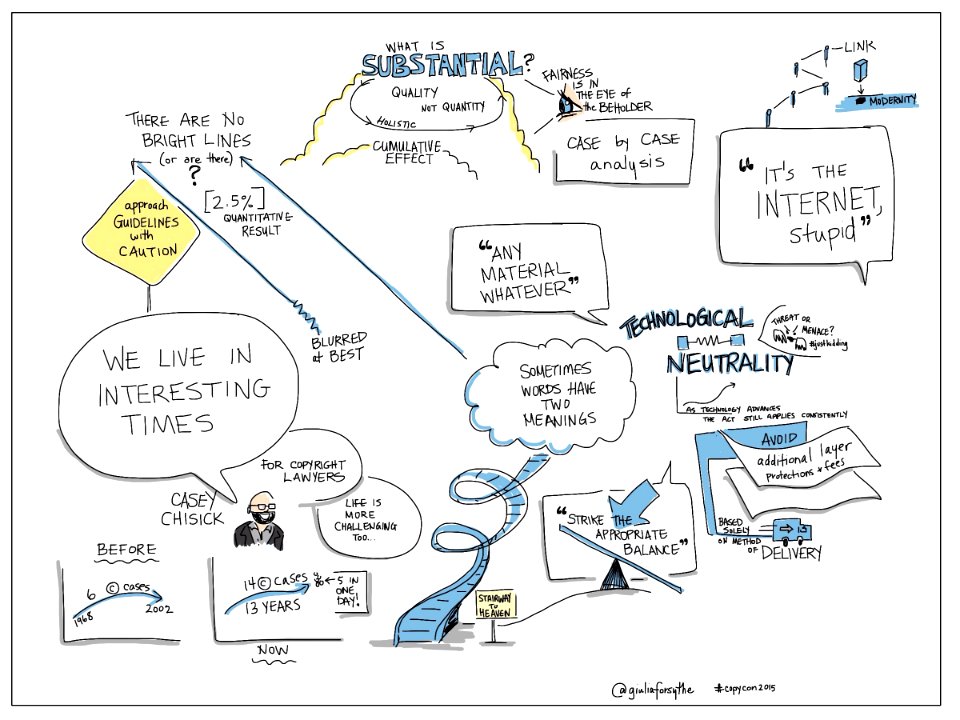 WHAT IS
SUBSTANTIAL?
QUALITY
NOT QUANTITY
HOLISTIC
CUMULATIVE
EFFECT
FAIRNESS
IS IN
THE EYE of
the BEHOLDER
CASE by CASE
analysis
LINK
MODERNITY
"IT'S THE
INTERNET,
stupid"
THERE ARE NO
BRIGHT LINES
(or are there)
?
[2.5%]
QUANTITATIVE
RESULT
approach
GUIDELINES
with
CAUTION
BLURRED
at BEST
"ANY
MATERIAL
WHATEVER"
TECHNOLOGICAL
NEUTRALITY
THREAT OR
MENACE?
#justkidding
AS TECHNOLOGY ADVANCES
THE ACT STILL APPLIES CONSISTENTLY
AVOID
additional layer
protections + fees
BASED
SOLELY
ON METHOD
OF DELIVERY
WE LIVE IN
INTERESTING
TIMES
FOR COPYRIGHT
LAWYERS
LIFE IS
MORE
CHALLENGING
TOO...
CASEY
CHISICK
SOMETIMES
WORDS HAVE
TWO
MEANINGS
"STRIKE THE
APPROPRIATE
BALANCE"
STAIRWAY
TO
HEAVEN
BEFORE
6 © cases
1968
2002
14 © cases
13 YEARS
5 IN
ONE
DAY!
NOW
@giuliaforsythe #copycon2015